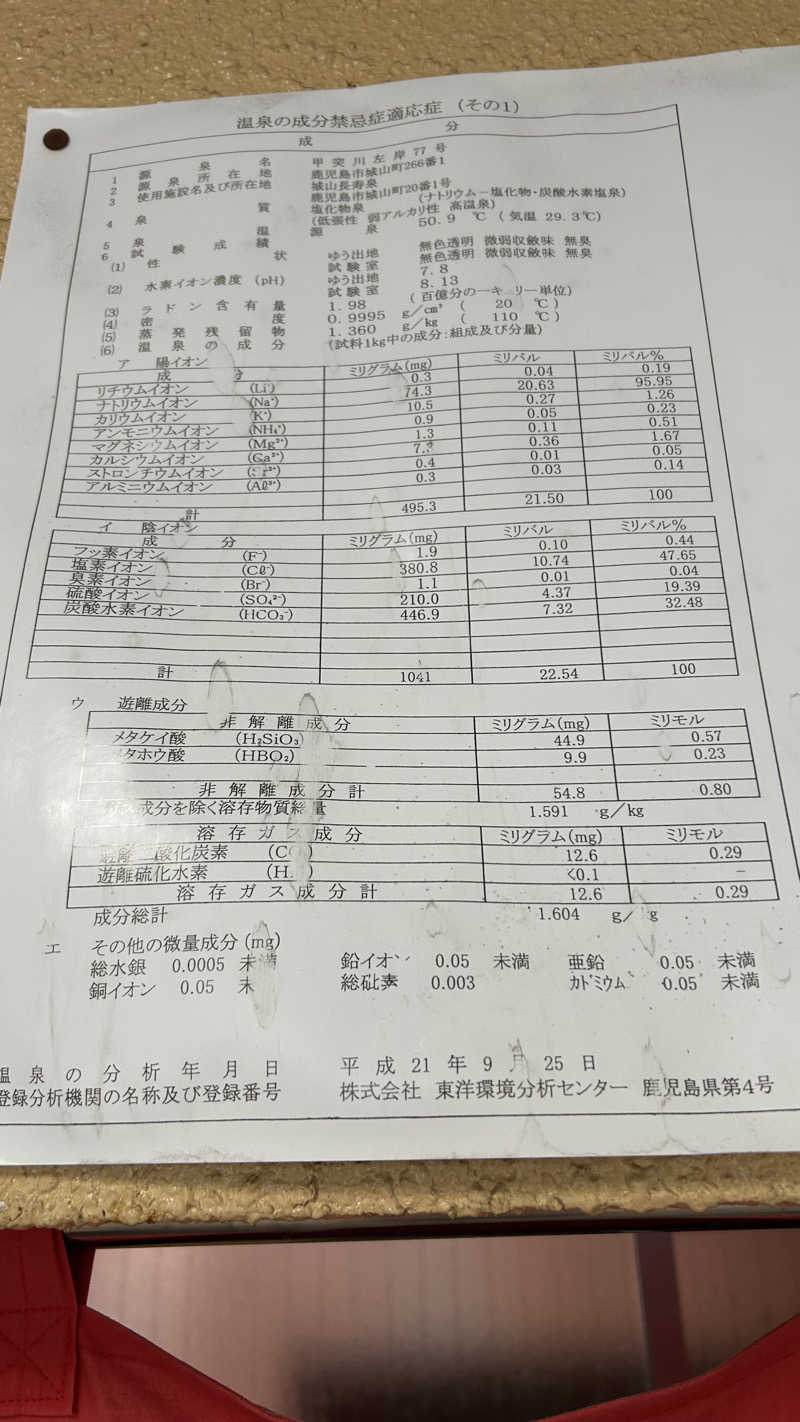 温泉の成分禁忌症適応症 (その1)
成 分
1 源 泉 名 甲突川左岸77号
2 源 泉 所 在 地 鹿児島市城山町266番1
3 使用施設名及び所在地 城山長寿泉
鹿児島市城山町20番1号
4 泉 質 塩化物泉 (ナトリウム－塩化物・炭酸水素塩泉)
(低張性 弱アルカリ性 高温泉)
5 泉 温 源 泉 50.9 ℃ (気温 29.3℃)
6 試 験 成 績
(1) 性 状 ゆう出地 無色透明 微弱収斂味 無臭
試験室 無色透明 微弱収斂味 無臭
(2) 水素イオン濃度 (pH) ゆう出地 7.8
試験室 8.13
(3) ラドン含有量 1.98 (百億分の一キ リー単位)
(4) 密 度 0.9995 g/cm³ ( 20 ℃)
(5) 蒸発残留物 1.360 g/kg ( 110 ℃)
(6) 温泉の成分 (試料1kg中の成分:組成及び分量)
ア 陽イオン
成 分 ミリグラム(mg) ミリバル ミリバル%
リチウムイオン (Li⁺) 0.3 0.04 0.19
ナトリウムイオン (Na⁺) 74.3 20.63 95.95
カリウムイオン (K⁺) 10.5 0.27 1.26
アンモニウムイオン (NH₄⁺) 0.9 0.05 0.23
マグネシウムイオン (Mg²⁺) 1.3 0.11 0.51
カルシウムイオン (Ca²⁺) 7. 0.36 1.67
ストロンチウムイオン (Sr²⁺) 0.4 0.01 0.05
アルミニウムイオン (Aℓ³⁺) 0.3 0.03 0.14
計 495.3 21.50 100
イ 陰イオン
成 分 ミリグラム(mg) ミリバル ミリバル%
フッ素イオン (F⁻) 1.9 0.10 0.44
塩素イオン (Cℓ⁻) 380.8 10.74 47.65
臭素イオン (Br⁻) 1.1 0.01 0.04
硫酸イオン (SO₄²⁻) 210.0 4.37 19.39
炭酸水素イオン (HCO₃⁻) 446.9 7.32 32.48
計 1041 22.54 100
ウ 遊離成分
非解離成分 ミリグラム(mg) ミリモル
メタケイ酸 (H₂SiO₃) 44.9 0.57
タホウ酸 (HBO₂) 9.9 0.23
非解離成分計 54.8 0.80
成分を除く溶存物質総量 1.591 g/kg
溶存ガス成分 ミリグラム(mg) ミリモル
遊離 酸化炭素 (C ) 12.6 0.29
遊離硫化水素 (H ) <0.1 －
溶存ガス成分計 12.6 0.29
成分総計 1.604 g/ g
エ その他の微量成分(mg)
総水銀 0.0005 未満 鉛イオン 0.05 未満 亜鉛 0.05 未満
銅イオン 0.05 未 総砒素 0.003 カドミウム 0.05 未満
温泉の分析年月日 平成21年9月25日
登録分析機関の名称及び登録番号 株式会社 東洋環境分析センター 鹿児島県第4号